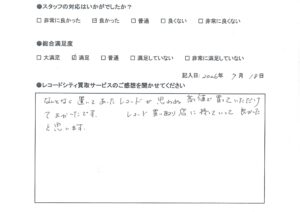 ●スタッフの対応はいかがでしたか?
□ 非常に良かった ☑ 良かった □ 普通 □ 良くない □ 非常に良くない
●総合満足度
□ 大満足 ☑ 満足 □ 普通 □ 満足していない □ 非常に満足していない
記入日: 2026年 9月 18日
●レコードシティ買取サービスのご感想を聞かせてください
なんとなく置いてあったレコードが思わぬ高値で買っていただけ
てよかったです。 レコード買い取り店に持っていって良かった
と思います。